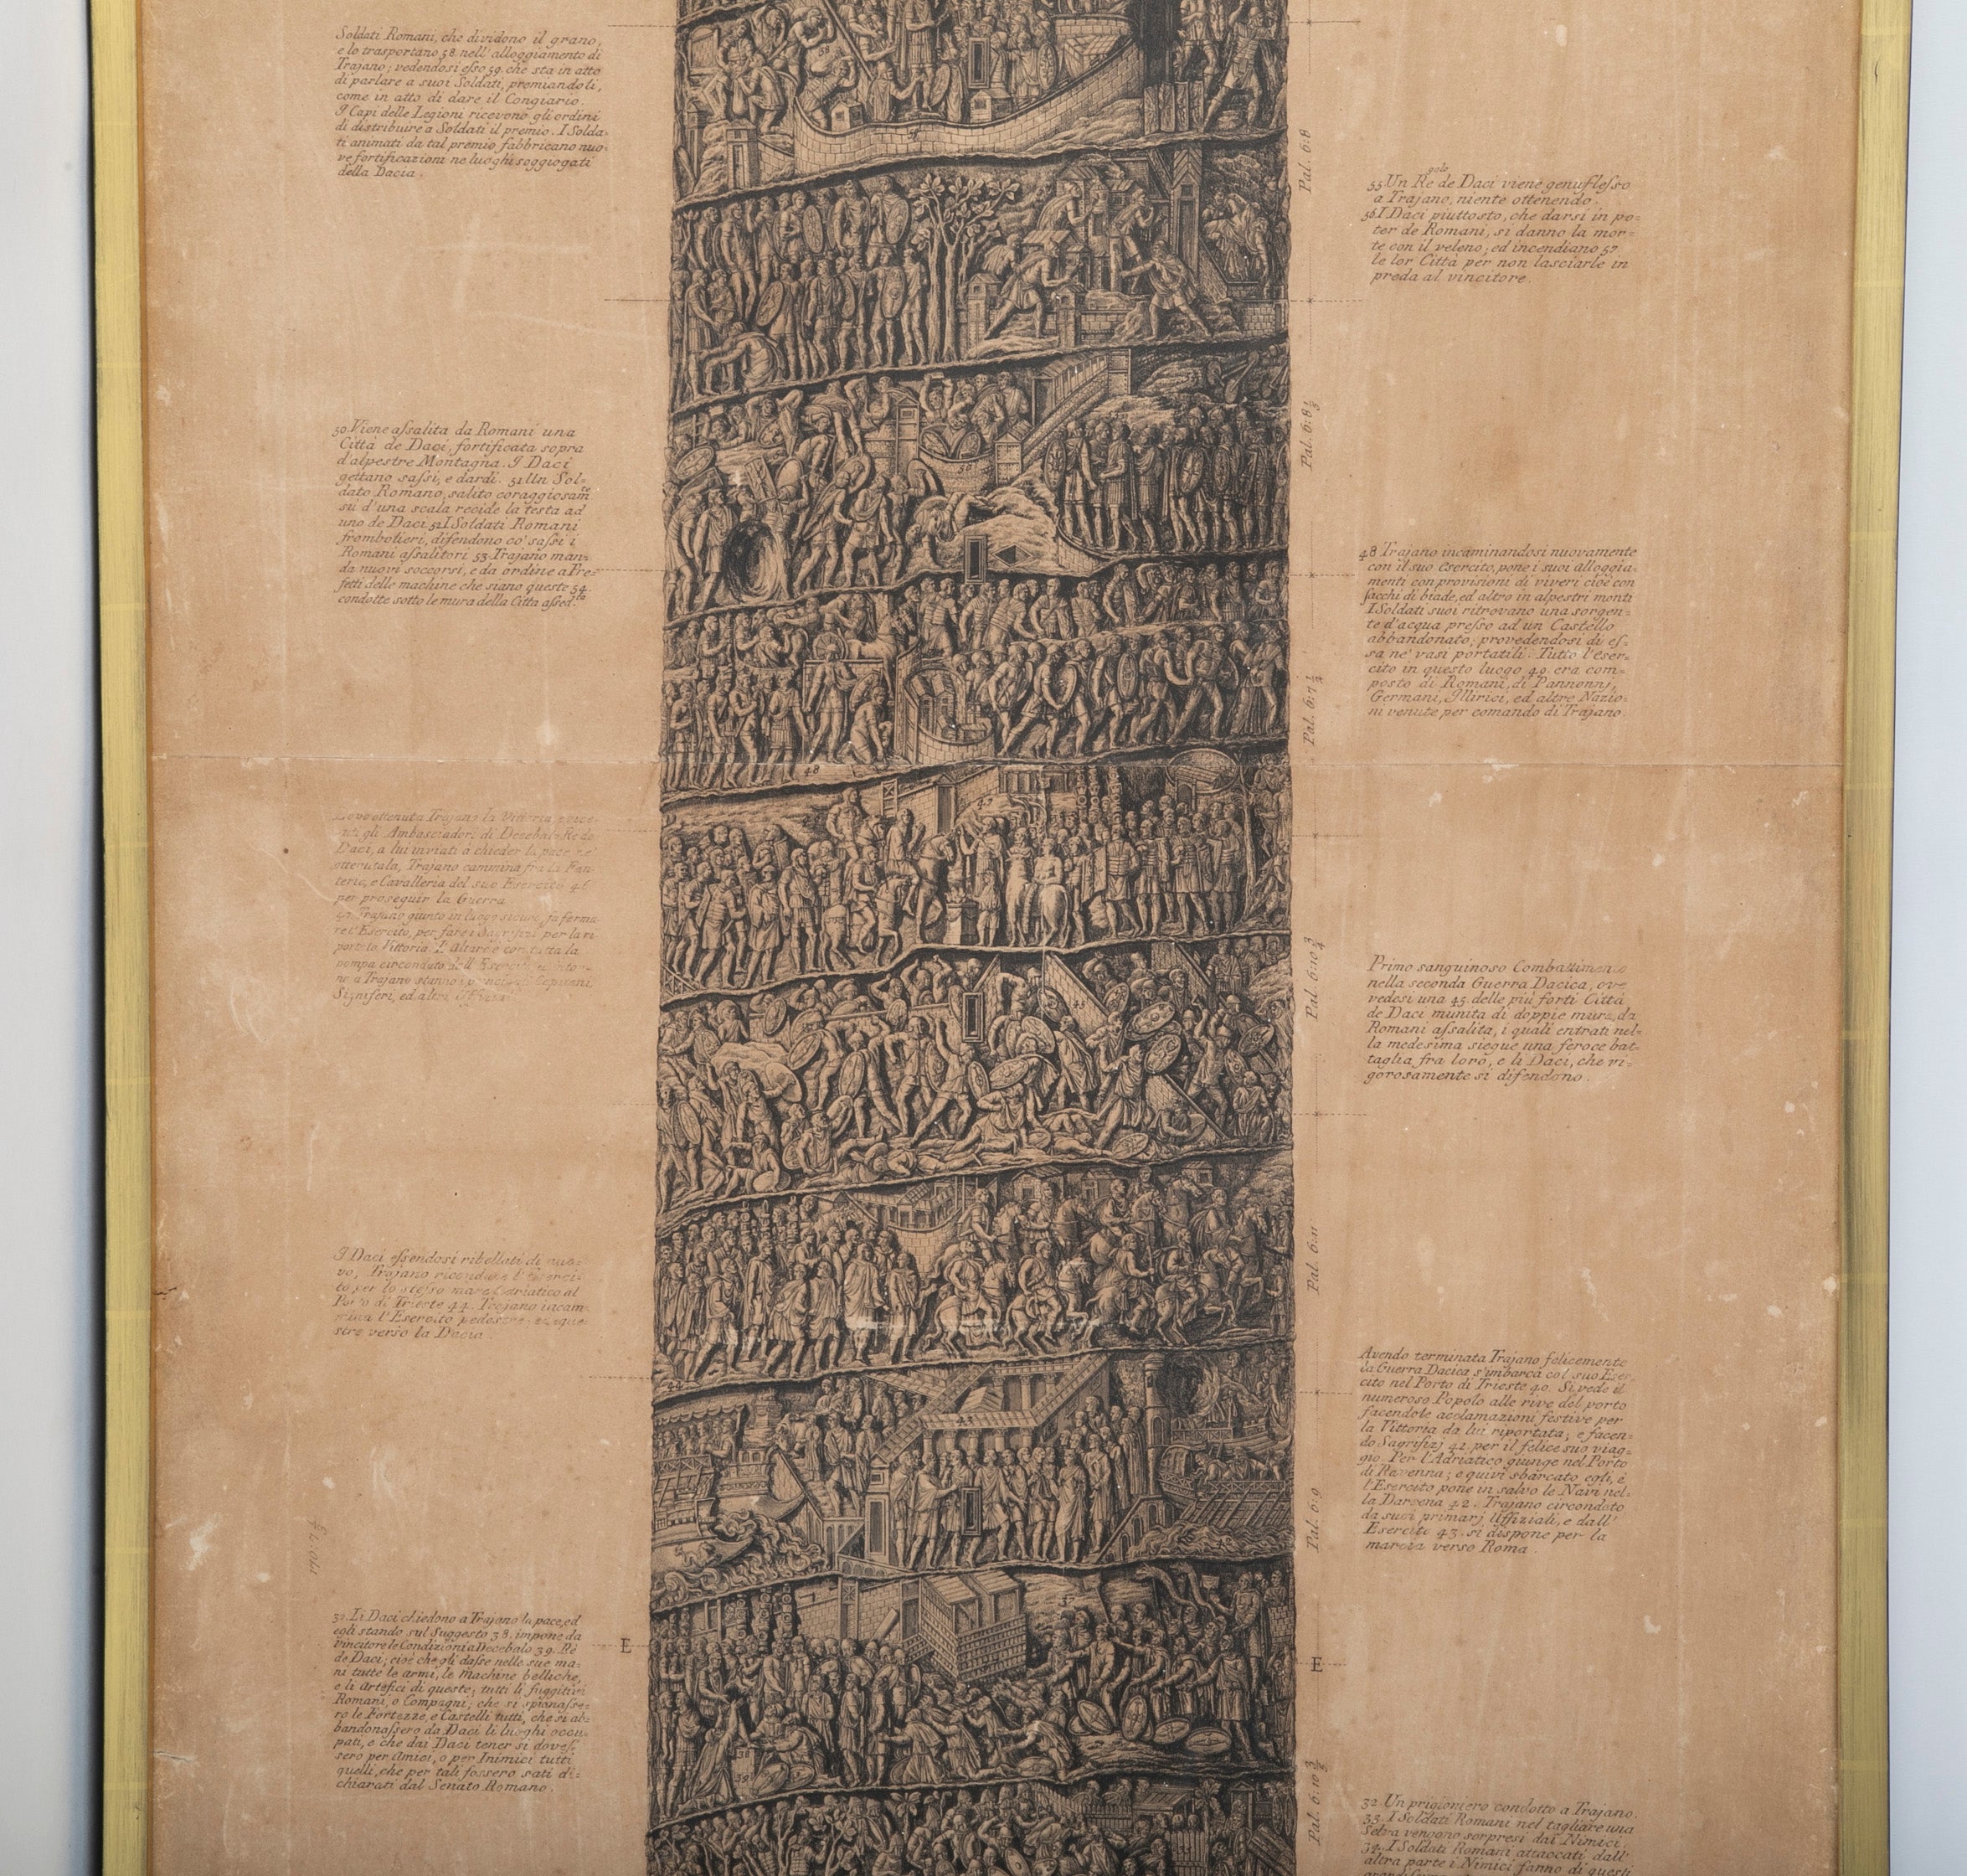 Soldati Romani, che dividono il grano,
e lo trasportano 58. nell'alloggiamento di
Trajano; vedendosi eſso 59. che sta in atto
di parlare a suoi Soldati, premiandoli,
come in atto di dare il Congiario.
I Capi delle Legioni ricevono gli ordini
di distribuire a Soldati il premio. I Solda=
ti animati da tal premio fabbricano nuo=
ve fortificazioni ne luoghi soggiogati
della Dacia.
50. Viene aſsalita da Romani una
Città de Daci, fortificata sopra
d'alpestre Montagna. I Daci
gettano saſsi, e dardi. 51 Un Sol=
dato Romano, salito coraggiosam.te
su d'una scala recide la testa ad
uno de Daci. 52 I Soldati Romani
frombolieri, difendono co' saſsi i
Romani aſsalitori 53 Trajano man=
da nuovi soccorsi, e da ordine a Pre=
fetti delle machine che siano queste 54.
condotte sotto le mura della Città aſsed.ta
ottenuta Trajano la Vittoria,
gli Ambasciadori di Decebalo Re de
Daci, a lui inviati a chieder la pace
Trajano cammina fra la Fan=
teria, e Cavalleria del suo Esercito 46
per proseguir la Guerra
Trajano giunto in luogo sicuro, fa ferma
re l'Esercito, per fare i Sagrifizi per la ri
portata Vittoria. L'Altare è con tutta la
pompa circondato dell'Esercito
no a Trajano stanno i Capitani,
Signiferi, ed altri
I Daci eſsendosi ribellati di nuo=
vo, Trajano riconduce l'Eserci=
to per lo steſso mare Adriatico al
Porto di Trieste 44. Trajano incam=
mina l'Esercito pedestre, ed eque=
stre verso la Dacia.
37. Li Daci chiedono a Trajano la pace, ed
egli stando sul Suggesto 38. impone da
vincitore le Condizioni a Decebalo 39. Rè
de Daci; cioè che gli daſse nelle sue ma=
ni tutte le armi, le machine belliche,
e li Artefici di queste; tutti li fuggitivi
Romani, o Compagni; che si spianaſse=
ro le Fortezze, e Castelli tutti, che si ab=
bandonaſsero da Daci li luoghi occu=
pati, e che dai Daci tener si doveſ=
sero per Amici, o per Inimici tutti
quelli, che per tali foſsero stati di=
chiarati dal Senato Romano.
E
58
50
48
47
45
44
43
38
39
Pal. 6:8
Pal. 6:8 1/3
Pal. 6:7 1/2
Pal. 6:10 3/4
Pal. 6:11
Pal. 6:9
E
Pal. 6:10
55 Un Re de Daci viene genufleſso
a Trajano, niente ottenendo.
56 I Daci piuttosto, che darsi in po=
ter de Romani, si danno la mor=
te con il veleno; ed incendiano 57.
le lor Città per non lasciarle in
preda al vincitore.
48 Trajano incaminandosi nuovamente
con il suo Esercito, pone i suoi alloggia=
menti con provisioni di viveri cioè con
sacchi di biade, ed altro in alpestri monti
I Soldati suoi ritrovano una sorgen=
te d'acqua preſso ad un Castello
abbandonato; provedendosi di eſ=
sa ne' vasi portatili. Tutto l'eser=
cito in questo luogo 49. era com=
posto di Romani, di Pannonnj,
Germani, Illirici, ed altre Nazio=
ni venute per comando di Trajano
Primo sanguinoso Combattimento
nella seconda Guerra Dacica, ove
vedesi una 45. delle più forti Città
de Daci munita di doppie mura, da
Romani aſsalita, i quali entrati nel=
la medesima siegue una feroce bat=
taglia fra loro, e li Daci, che vi=
gorosamente si difendono.
Avendo terminata Trajano felicemente
la Guerra Dacica s'imbarca col suo Eser=
cito nel Porto di Trieste 40. Si vede il
numeroso Popolo alle rive del porto
facendole acclamazioni festive per
la Vittoria da lui riportata; e facen=
do Sagrifizj 41. per il felice suo viag=
gio. Per l'Adriatico giunge nel Porto
di Ravenna; e quivi sbarcato egli, e
l'Esercito pone in salvo le Navi nel=
la Darsena 42. Trajano circondato
da suoi primarj Uffiziali, e dall'
Esercito 43. si dispone per la
marcia verso Roma.
32 Un prigioniero condotto a Trajano.
33. I Soldati Romani nel tagliare una
Selva vengono sorpresi dai Nimici.
34. I Soldati Romani attaccati dall'
altra parte i Nimici fanno di questi